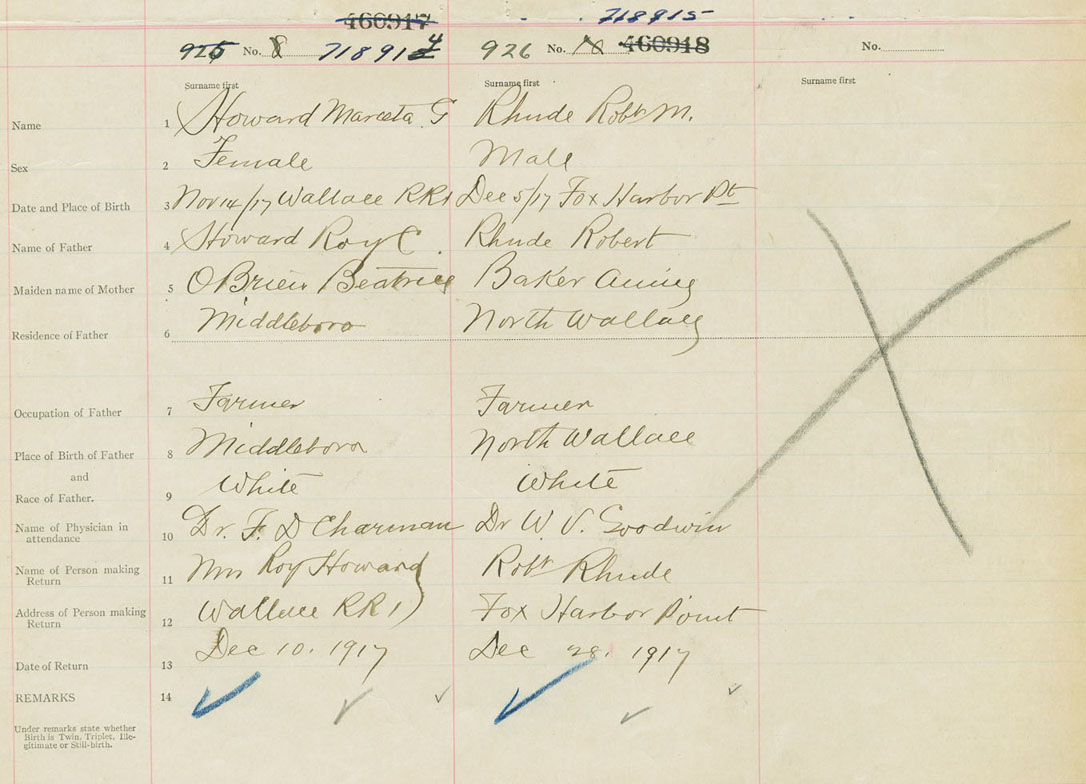 460917 718915
925 No. 8 718914 926 No. 460918 No.
Surname first Surname first Surname first
Name 1 Howard Mareeta G Rhude Robt M.
Sex 2 Female Male
Date and Place of Birth 3 Nov 14/17 Wallace RR1 Dec 5/17 Fox Harbor Pt
Name of Father 4 Howard Roy C. Rhude Robert
Maiden name of Mother 5 OBrien Beatrice Baker Annie
Residence of Father 6 Middleboro North Wallace
Occupation of Father 7 Farmer Farmer
Place of Birth of Father 8 Middleboro North Wallace
and
Race of Father. 9 White White
Name of Physician in 10 Dr. F. D Charman Dr W. V. Goodwin
attendance
Name of Person making 11 Mrs Roy Howard Robt Rhude
Return
Address of Person making 12 Wallace RR 1 Fox Harbor Point
Return
Date of Return 13 Dec 10. 1917 Dec 28. 1917
REMARKS 14
Under remarks state whether
Birth is Twin, Triplet, Ille-
gitimate or Still-birth.